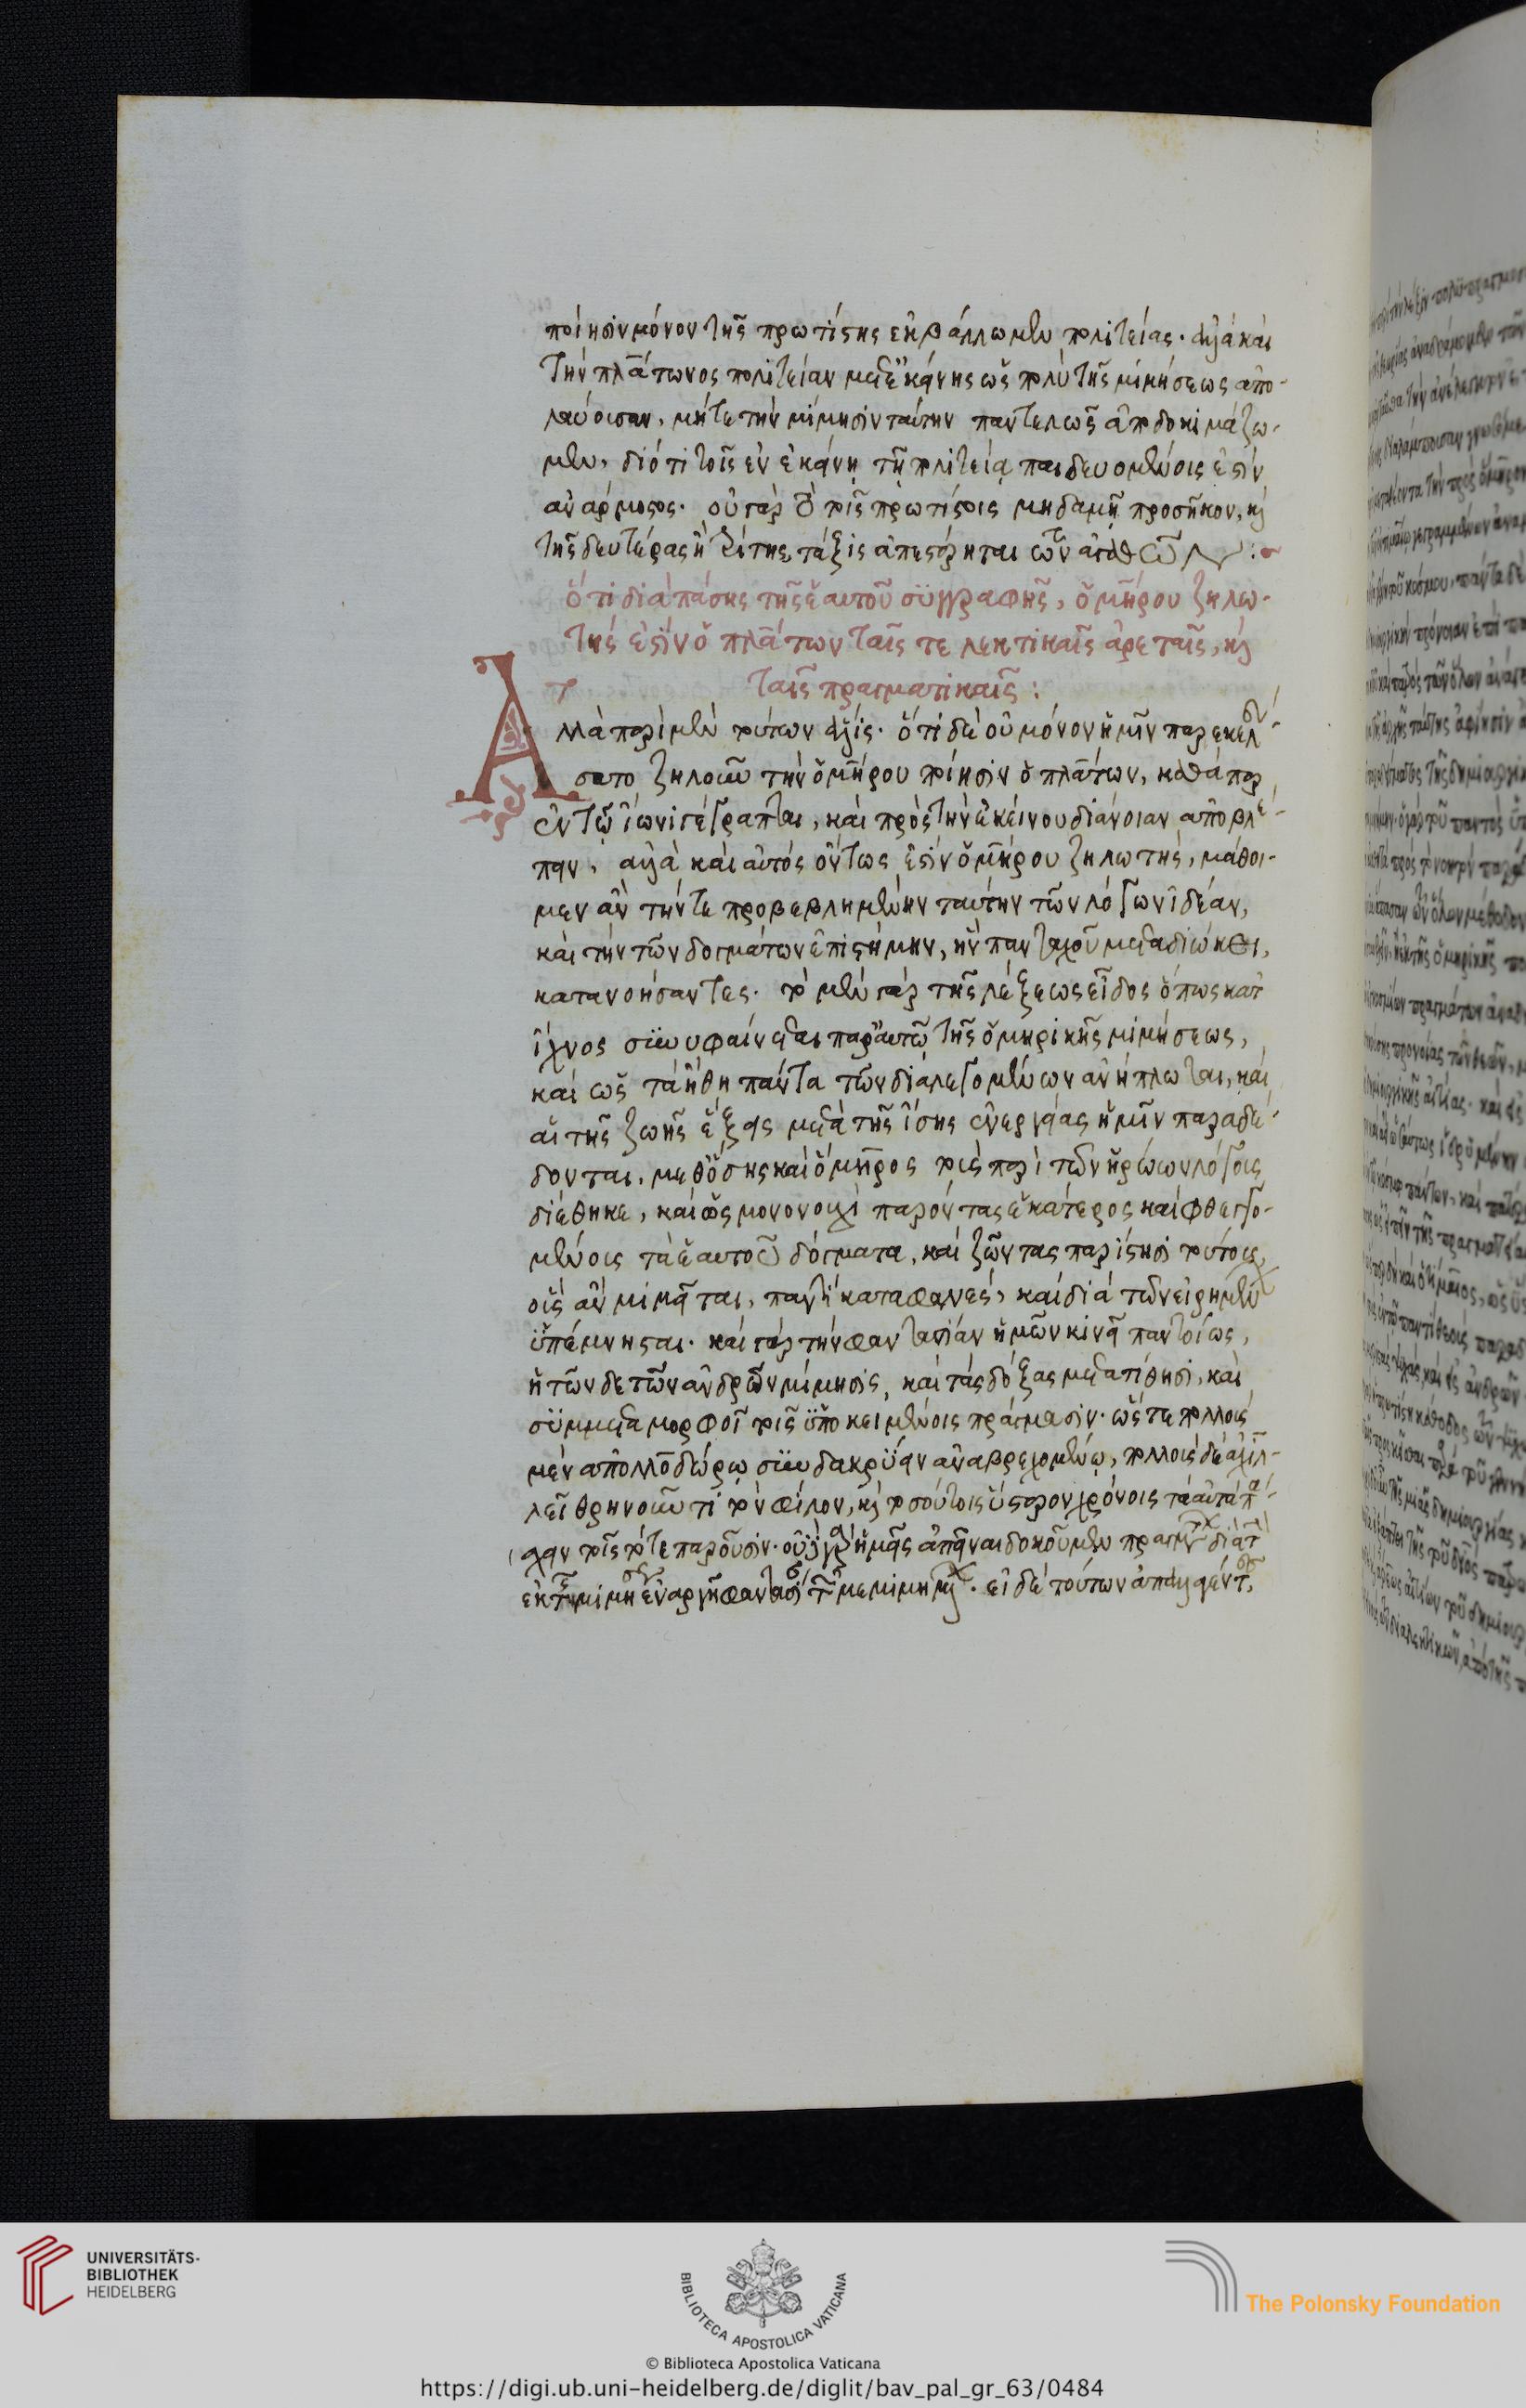 ποίησιν μόνον τῆς πρωτίστης ἐκβάλλωμεν πολιτείας. ἀλλὰ καὶ
τὴν πλάτωνος πολιτείαν μετ' ἐκείνης ὡς πολὺ τῆς μιμήσεως ἀπο-
λαύουσαν, μήτε τὴν μίμησιν ταύτην παντελῶς ἀποδοκιμάζω-
μεν, διότι τοῖς ἐν ἐκείνῃ τῇ πολιτείᾳ παιδευομένοις ἐστὶν
ἀνάρμοστος. οὐ γὰρ ὃ τοῖς πρωτίστοις μηδαμῇ προσῆκον, καὶ
τῆς δευτέρας ἢ τρίτης τάξις ἀπεστέρηται τῶν ἀγαθῶν :
ὅτι διὰ πάσης τῆς ἑαυτοῦ συγγραφῆς, ὁμήρου ζηλω-
τής ἐστιν ὁ πλάτων ταῖς τε λεκτικαῖς ἀρεταῖς, καὶ
ταῖς πραγματικαῖς :
Ἀλλὰ περὶ μὲν τούτων ἅλις. ὅτι δὲ οὐ μόνον ἡμῖν παρεκελεύ-
σατο ζηλοῦν τὴν ὁμήρου ποίησιν ὁ πλάτων, καθάπερ
ἐν τῷ ἴωνι γέγραπται, καὶ πρὸς τὴν ἐκείνου διάνοιαν ἀποβλέ-
πειν, ἀλλὰ καὶ αὐτός ὄντως ἐστὶν ὁμήρου ζηλωτής, μάθοι-
μεν ἂν τήν τε προβεβλημένην ταύτην τῶν λόγων ἰδέαν,
καὶ τὴν τῶν δογμάτων ἐπιστήμην, ἣν πανταχοῦ μεταδιώκει,
κατανοήσαντες. τὸ μὲν γὰρ τῆς λέξεως εἶδος ὅπως κατ
ἴχνος συνυφαίνεται παρ' αὐτῷ τῆς ὁμηρικῆς μιμήσεως,
καὶ ὡς τὰ ἤθη πάντα τῶν διαλεγομένων ἀνήπλωται, καὶ
αἱ τῆς ζωῆς ἕξεις μετὰ τῆς ἴσης ἐνεργείας ἡμῖν παραδέ-
δονται, μεθ' ὅσης καὶ ὅμηρος τοὺς περὶ τῶν ἡρώων λόγους
διέθηκε, καὶ ὡς μονονουχὶ παρόντας ἑκάτερος καὶ φθεγγο-
μένους τὰ ἑαυτοῦ δόγματα, καὶ ζῶντας παρίστησι τούτους,
οὓς ἂν μιμῆται, παντὶ καταφανές, καὶ διὰ τῶν εἰρημένων
ὑπέμνησται. καὶ γὰρ τὴν φαντασίαν ἡμῶν κινεῖ παντοίως,
ἡ τῶνδε τῶν ἀνδρῶν μίμησις, καὶ τὰς δόξας μετατίθησι, καὶ
συμμεταμορφοῖ τοῖς ὑποκειμένοις πράγμασιν. ὥστε πολλοὺς
μὲν ἀπολλοδώρῳ συνδακρύειν ἀναβρυχομένῳ, πολλοὺς δὲ ἀχιλ-
λεῖ θρηνοῦντι τὸν φίλον, καὶ τοσούτοις ὕστερον χρόνοις τὰ αὐτὰ πά-
σχειν τοῖς τότε παροῦσιν. οὕτω γὰρ ἡμᾶς ἀπεῖναι δοκοῦμεν πραγμάτων διὰ τὴν
ἐκ τῆς μιμήσεως ἐναργῆ φαντασίαν τῶν μεμιμημένων. εἰ δὲ τούτων ἀπαλλαγέντες
UNIVERSITÄTS-
BIBLIOTHEK
HEIDELBERG
BIBLIOTECA APOSTOLICA VATICANA
The Polonsky Foundation
© Biblioteca Apostolica Vaticana
https://digi.ub.uni-heidelberg.de/diglit/bav_pal_gr_63/0484